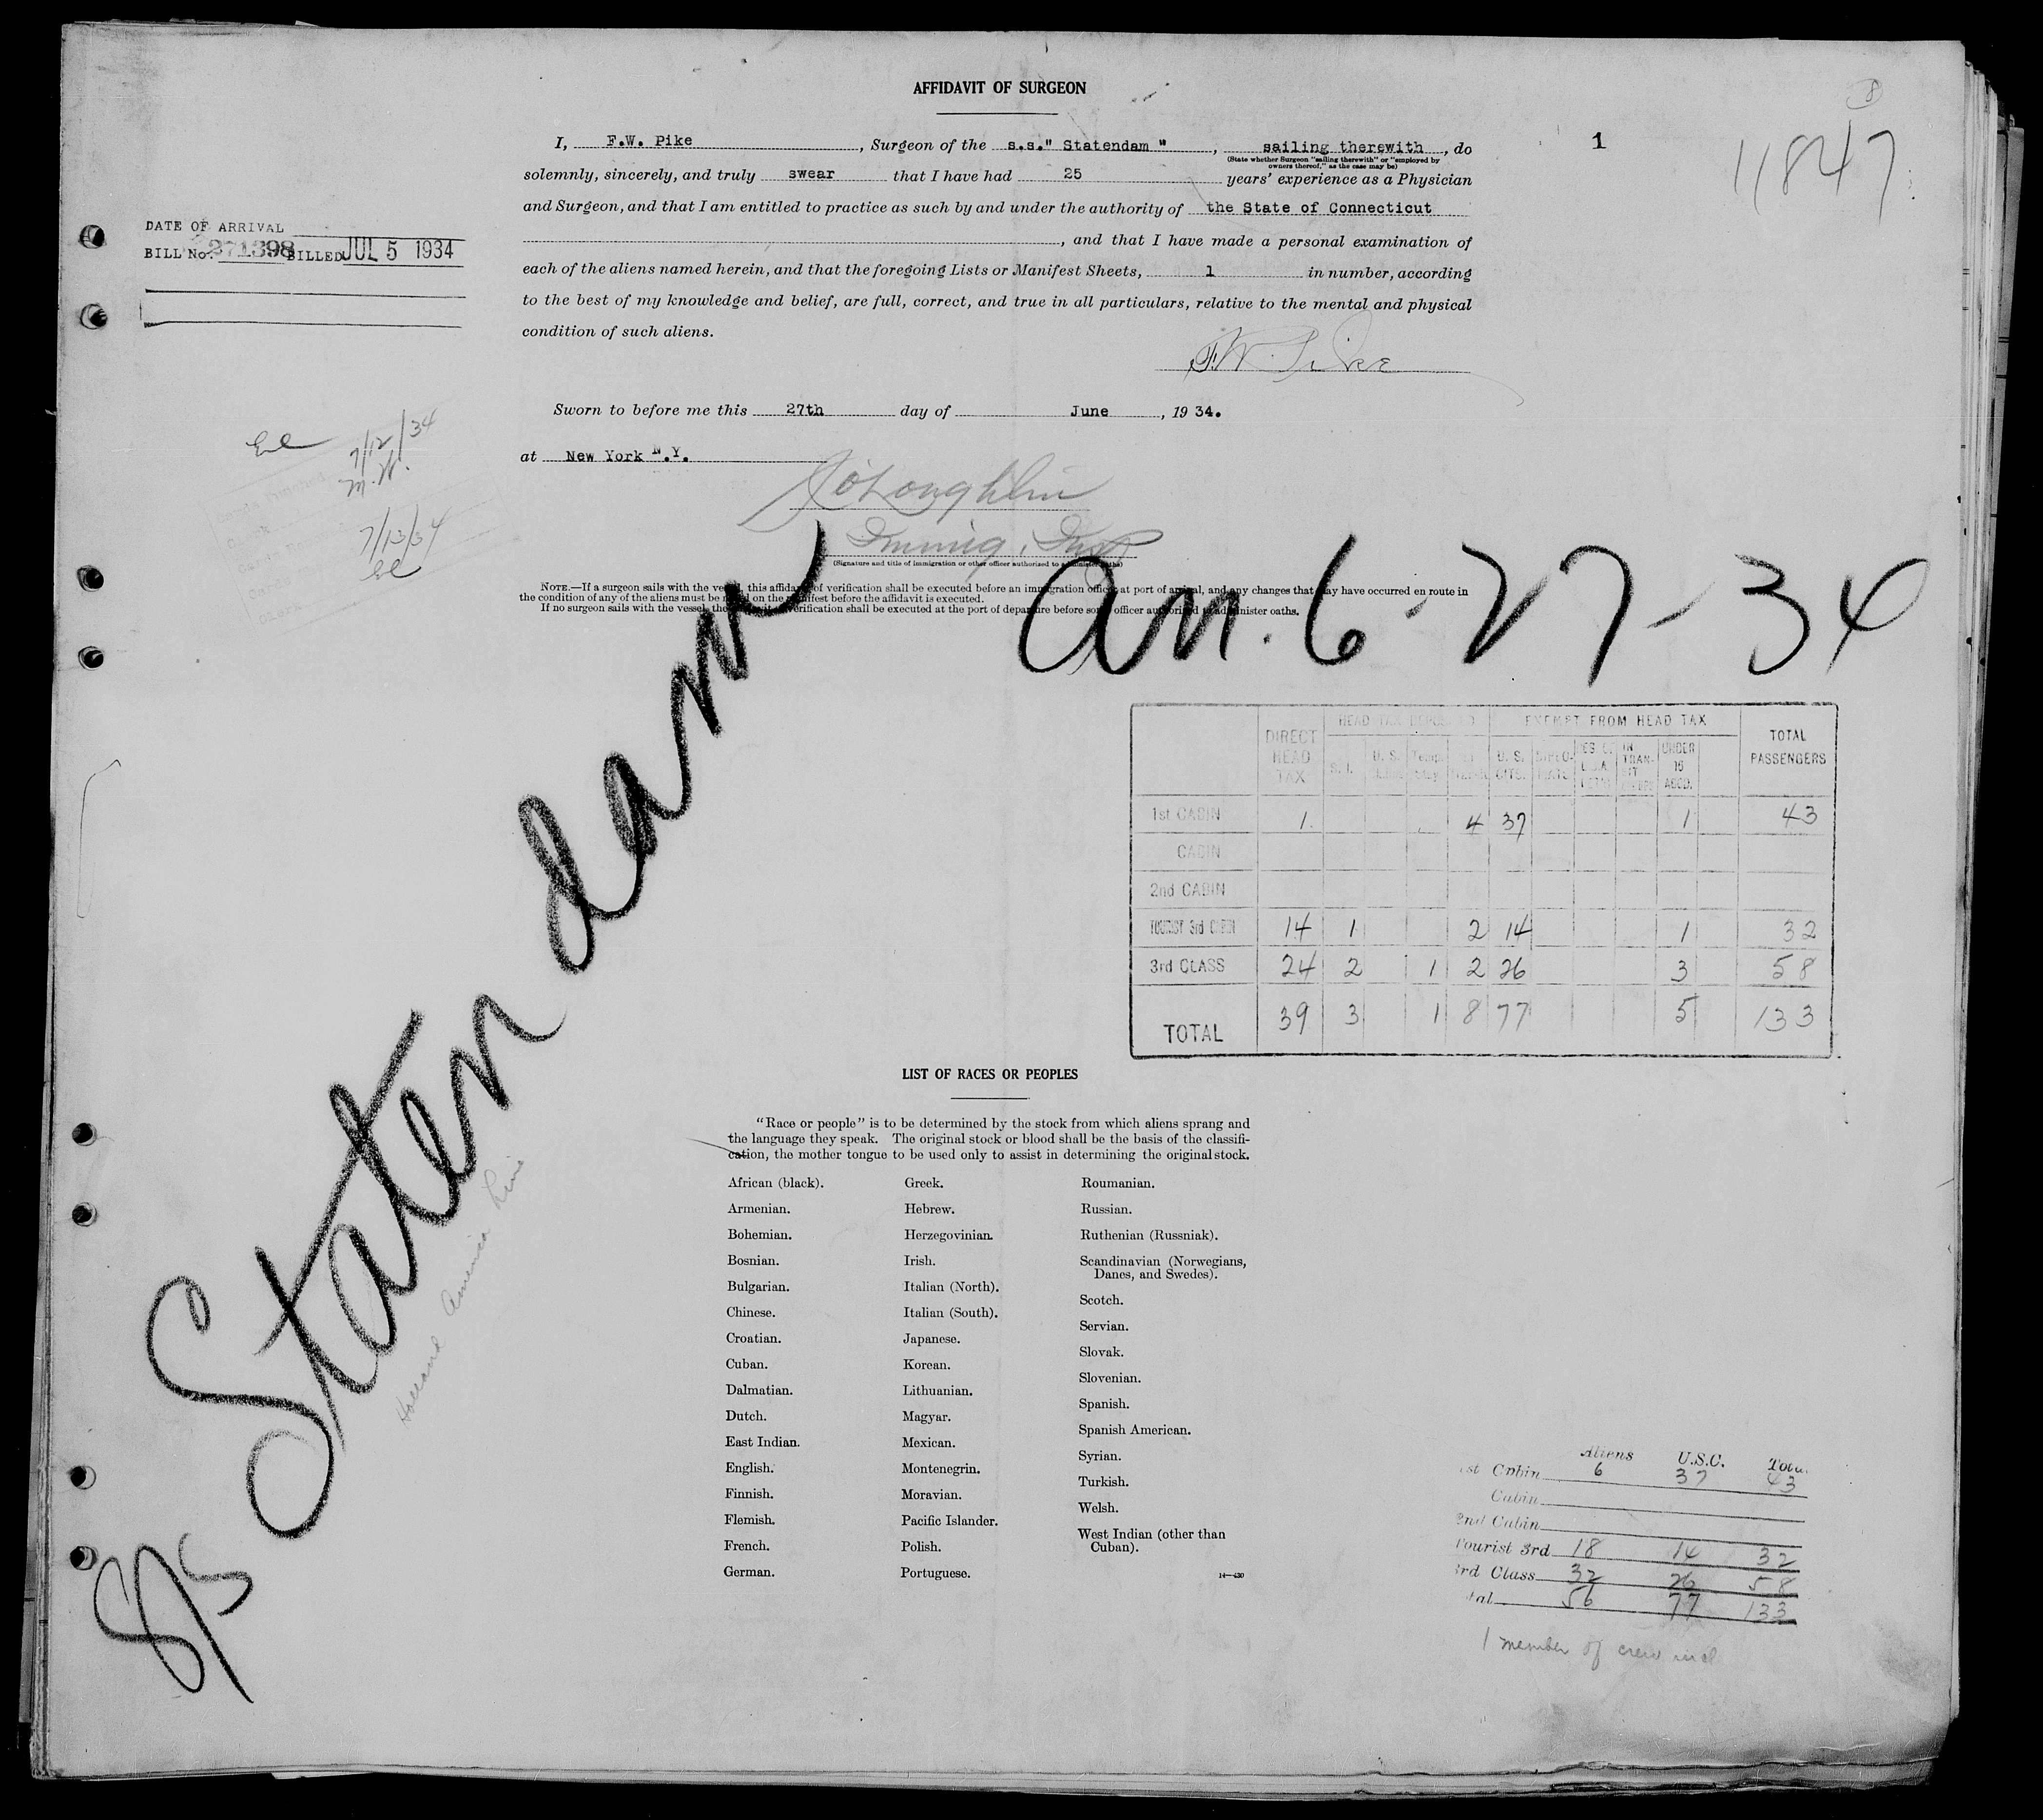 8
AFFIDAVIT OF SURGEON
1
11847
I, F.W. Pike, Surgeon of the s.s." Statendam ", sailing therewith, do
(State whether Surgeon "sailing therewith" or "employed by
owners thereof," as the case may be)
solemnly, sincerely, and truly swear that I have had 25 years' experience as a Physician
and Surgeon, and that I am entitled to practice as such by and under the authority of the State of Connecticut
, and that I have made a personal examination of
each of the aliens named herein, and that the foregoing Lists or Manifest Sheets, 1 in number, according
to the best of my knowledge and belief, are full, correct, and true in all particulars, relative to the mental and physical
condition of such aliens.
DATE OF ARRIVAL
BILL No. 271398 BILLED JUL 5 1934
F.W. Pike
Sworn to before me this 27th day of June, 19 34.
at New York N.Y.
7/12/34
M.W.
7/13/34
O'Loughlin
Immig. Insp
(Signature and title of immigration or other officer authorized to administer oaths)
NOTE.—If a surgeon sails with the vessel, this affidavit of verification shall be executed before an immigration officer at port of arrival, and any changes that may have occurred en route in
the condition of any of the aliens must be noted on the manifest before the affidavit is executed.
If no surgeon sails with the vessel, the affidavit of verification shall be executed at the port of departure before some officer authorized to administer oaths.
Arr. 6-27-34
S/S Statendam
Holland America Line
DIRECT HEAD TAX
HEAD TAX DEPOSITED
EXEMPT FROM HEAD TAX
TOTAL PASSENGERS
S. I. U. S. Temp. U. S. CITS. IN TRANSIT UNDER 16 ACCD.
1st CABIN 1 4 37 1 43
CABIN
2nd CABIN
TOURIST 3rd CABIN 14 1 2 14 1 32
3rd CLASS 24 2 1 2 26 3 58
TOTAL 39 3 1 8 77 5 133
LIST OF RACES OR PEOPLES
"Race or people" is to be determined by the stock from which aliens sprang and
the language they speak. The original stock or blood shall be the basis of the classifi-
cation, the mother tongue to be used only to assist in determining the original stock.
African (black).
Armenian.
Bohemian.
Bosnian.
Bulgarian.
Chinese.
Croatian.
Cuban.
Dalmatian.
Dutch.
East Indian.
English.
Finnish.
Flemish.
French.
German.
Greek.
Hebrew.
Herzegovinian.
Irish.
Italian (North).
Italian (South).
Japanese.
Korean.
Lithuanian.
Magyar.
Mexican.
Montenegrin.
Moravian.
Pacific Islander.
Polish.
Portuguese.
Roumanian.
Russian.
Ruthenian (Russniak).
Scandinavian (Norwegians,
Danes, and Swedes).
Scotch.
Servian.
Slovak.
Slovenian.
Spanish.
Spanish American.
Syrian.
Turkish.
Welsh.
West Indian (other than
Cuban).
14—430
Aliens U.S.C. Total
1st Cabin 6 37 43
Cabin
2nd Cabin
Tourist 3rd 18 14 32
3rd Class 32 26 58
Total 56 77 133
1 member of crew incl